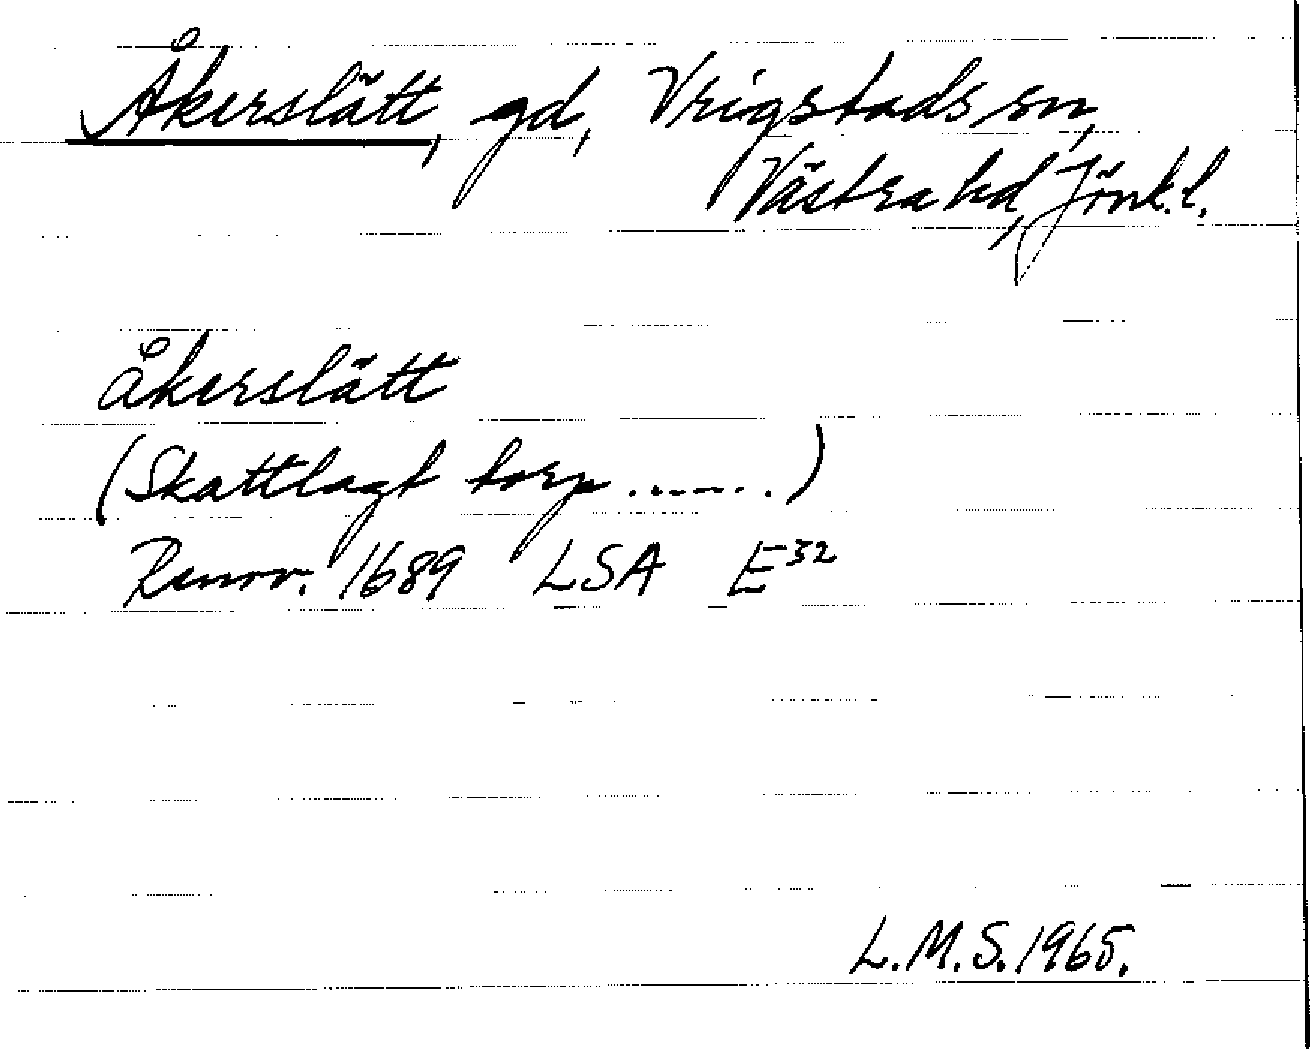 Åkerslätt, gd, Vrigstads sn,
Västra hd, Jönk.l.
åkerslätt
(Skattlagt torp .......)
Renov. 1689 LSA E32
L.M.S. 1965.